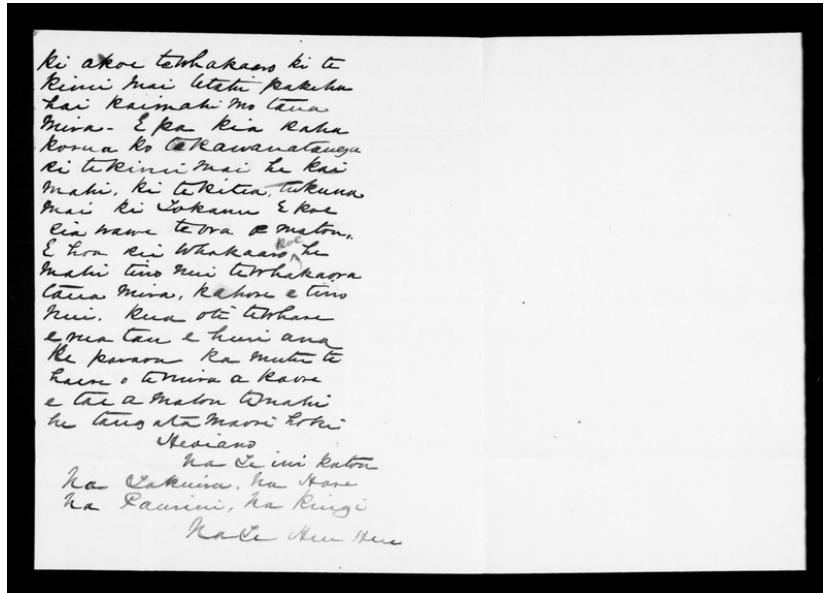 ki a koe te whakaaro ki te
kimi mai tetahi pakeha
hai kaimahi mo taua
mira - E pa kia kaha
korua ko te kawanatanga
ki te kimi mai he kai
mahi, ki te kitea, tukuna
mai ki Tokanu E koe
kia wawe te ora o matou,
E hoa kei whakaaro koe he
mahi tino nui te whakaora
taua mira, kahore e tino
nui. kua oti te whare
e rua tau e huri ana
he paraoa ka mutu te
haere o te mira a kaore
e tae a matou te mahi
he tangata maori hoki
Heoiano
Na Te iwi katoa
Na Takuira, Na Hare
Na Paurini, Na Kingi
Na Te Heu Heu